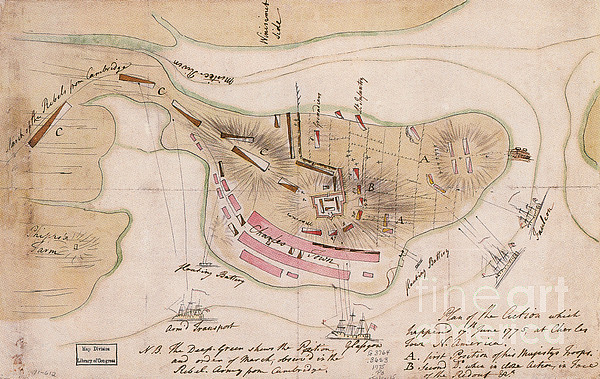 Winisimet
side
Mistic River
March of the Rebels from Cambridge
C
C
C
Grenadiers
Lt Infantry
A
B
A
Charles Town
Floating Battery
Floating Battery
Falcon
Glasgow
Armd Transport
Farm
Map Division
Library of Congress
N.B. The Deep Green shews the Position,
and order of March, observ'd in the
Rebel Army from Cambridge.
Plan of the Action which
happen'd 17th June 1775, at Charles
Town N. America.
A. first Position of his Majestys Troops.
B. Second Do. when in close Action, in Face
of the Redoubt &ca
G 3764
fineart
america